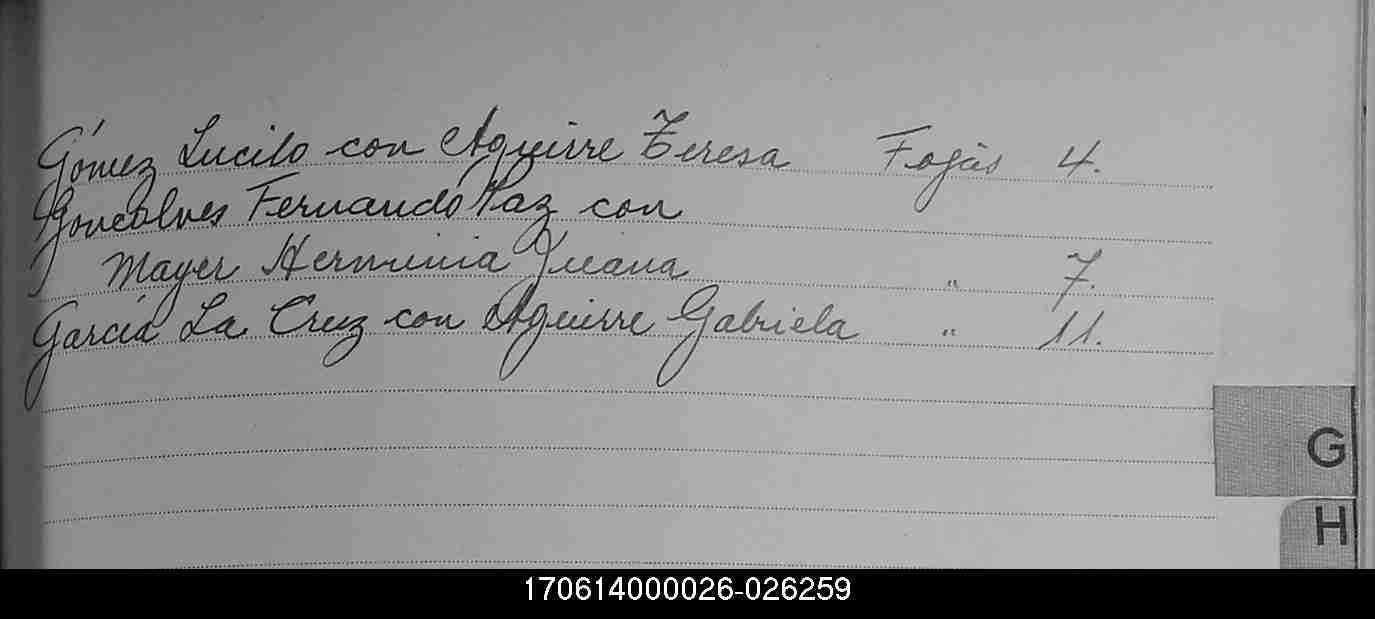 Gómez Lucilo con Aguirre Teresa Fojas 4.
Goncalves Fernando Paz con
Mayer Herminia Juana " 7.
García La Cruz con Aguirre Gabriela " 11.
G
H
170614000026-026259